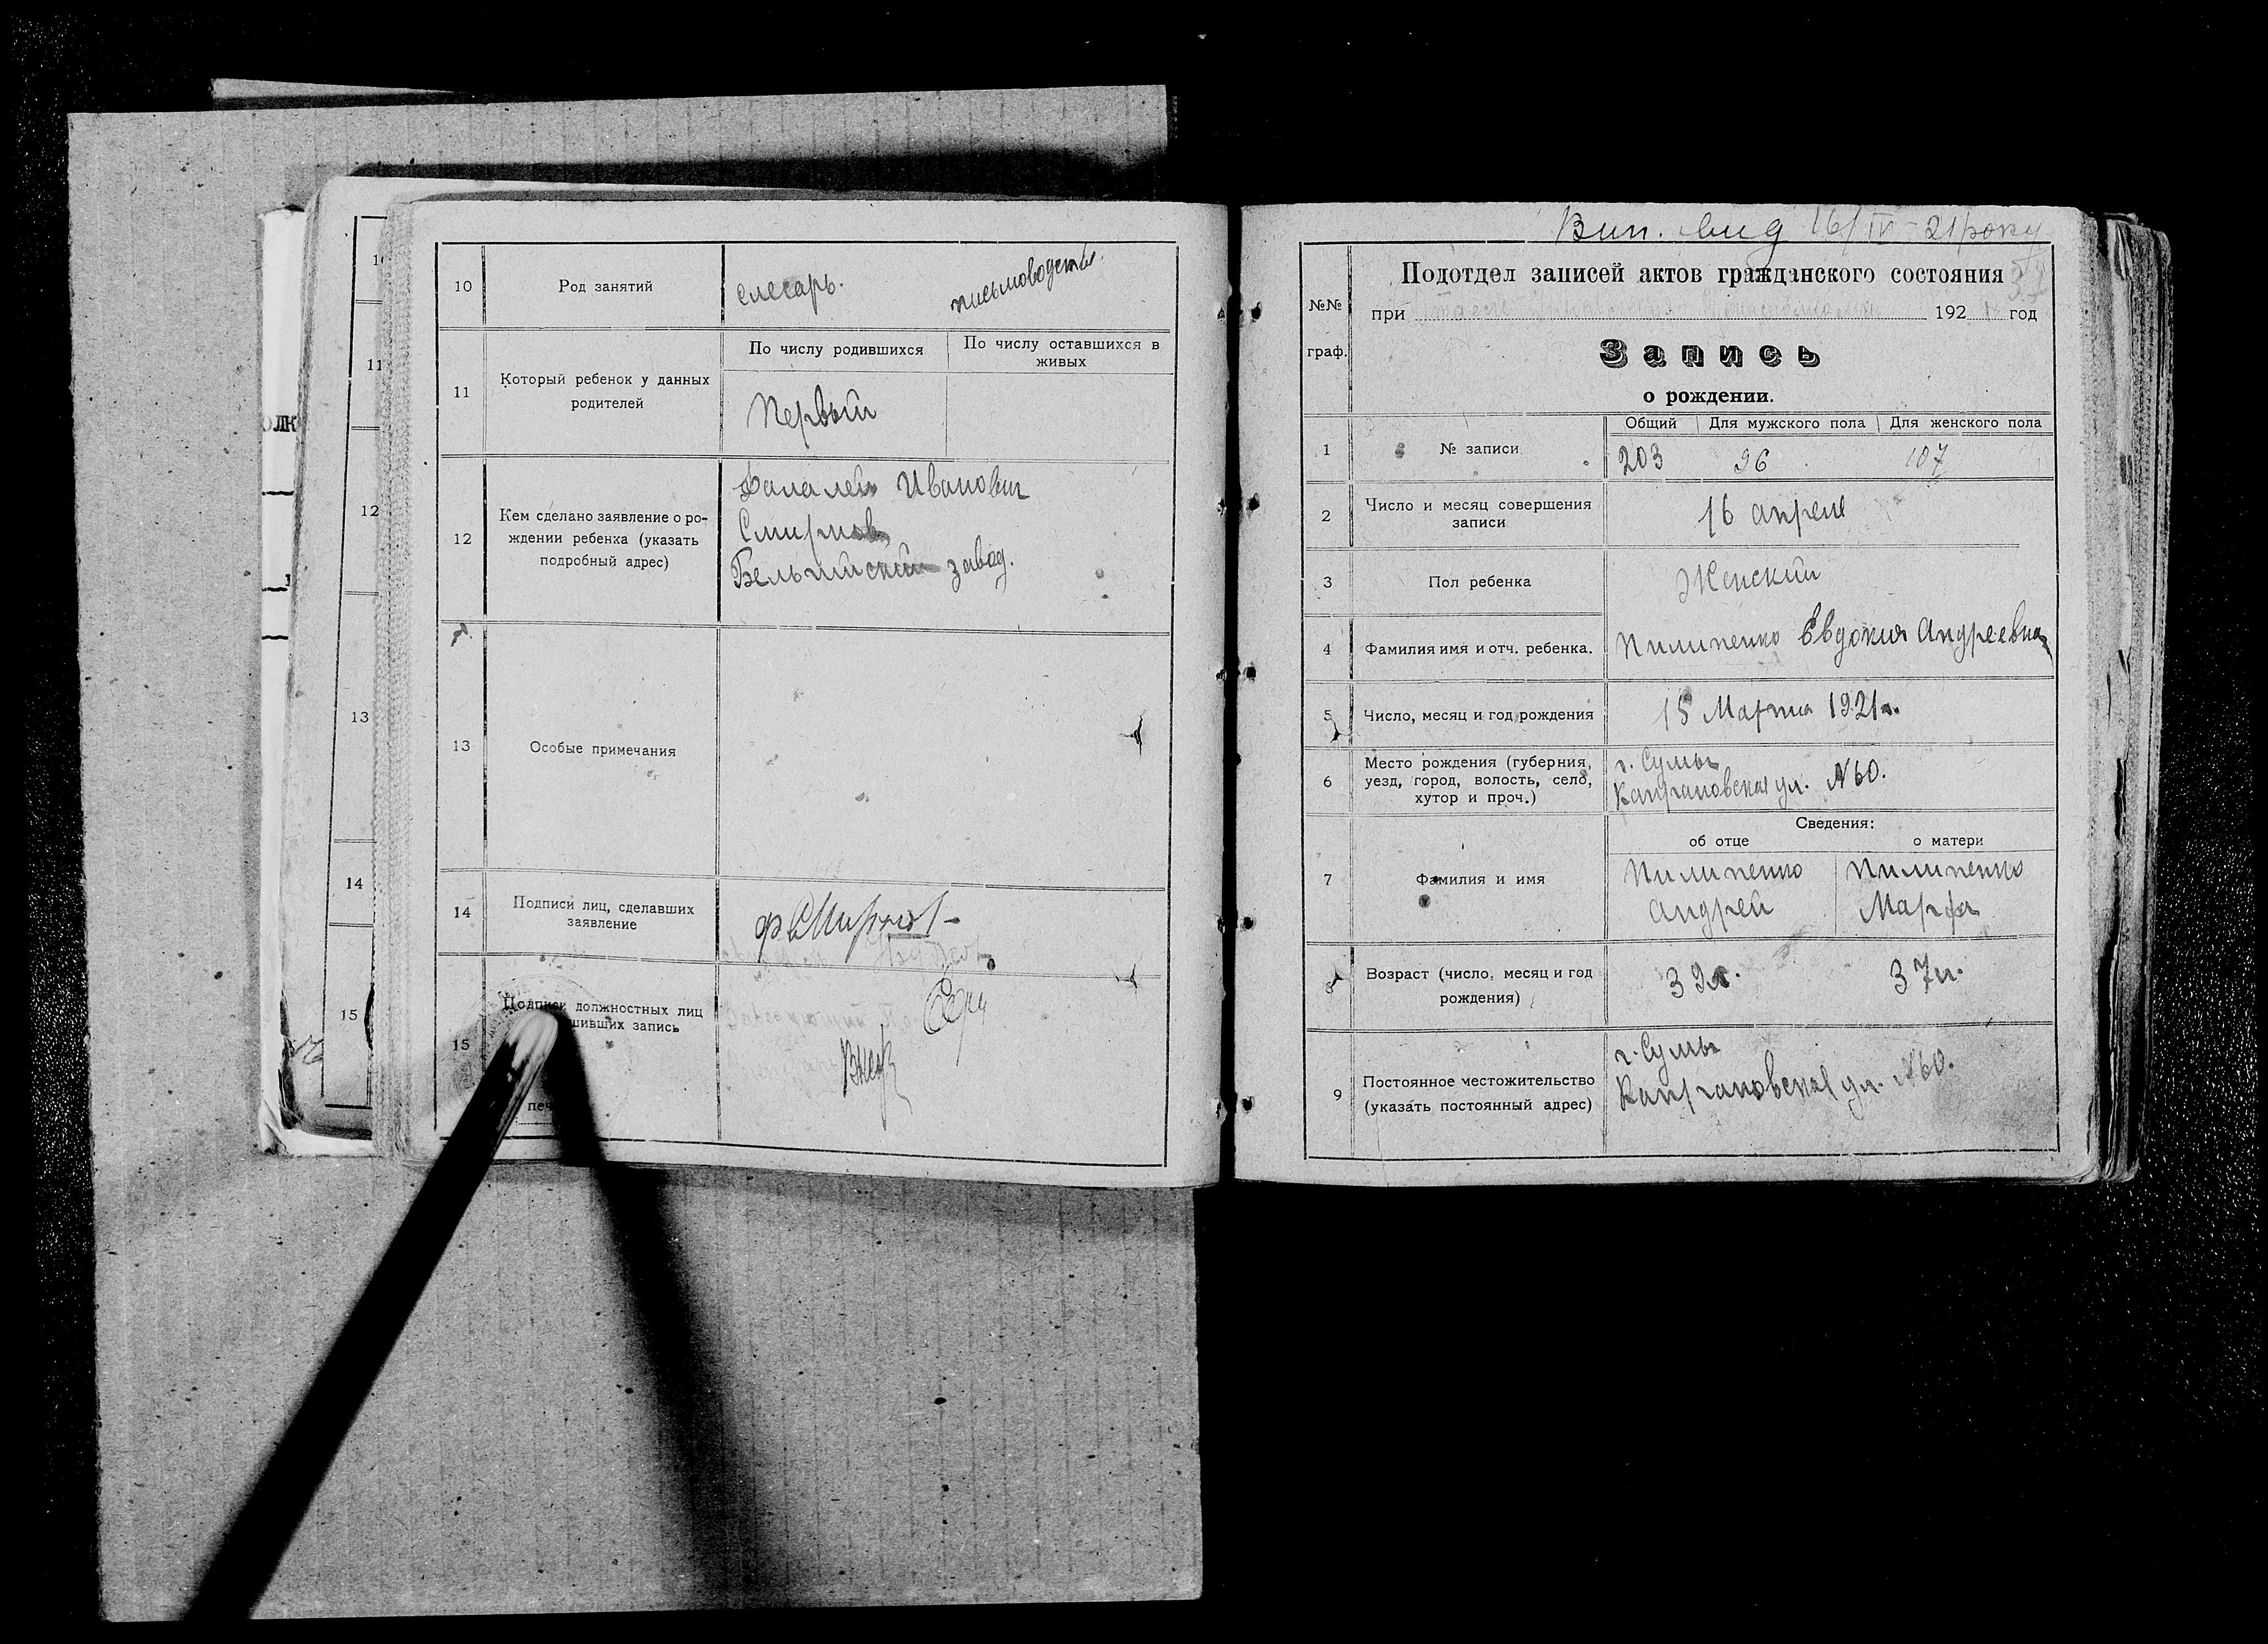 10
Род занятий
слесарь.
письмоводство.
11
Который ребенок у данных
родителей
По числу родившихся
По числу оставшихся в
живых
Первый
12
Кем сделано заявление о ро-
ждении ребенка (указать
подробный адрес)
Иванович
Смирнов
Бельгийский завод.
13
Особые примечания
14
Подписи лиц, сделавших
заявление
15
Подписи должностных лиц
шивших запись
печ
10
11
12
13
14
15
Вип. вид 16/IV-21 року
Подотдел записей актов гражданского состояния
№№
граф.
при
192
год
Запись
о рождении.
1
№ записи
Общий
Для мужского пола
Для женского пола
203
96
107
2
Число и месяц совершения
записи
16 апреля
3
Пол ребенка
Женский
4
Фамилия имя и отч. ребенка.
Пилипенко Евдокия Андреевна
5
Число, месяц и год рождения
15 Марта 1921г.
6
Место рождения (губерния,
уезд, город, волость, село,
хутор и проч.)
г. Сумы
ул. №60.
7
Фамилия и имя
Сведения:
об отце
о матери
Пилипенко
Андрей
Пилипенко
Марфа
8
Возраст (число, месяц и год
рождения)
39л.
37л.
9
Постоянное местожительство
(указать постоянный адрес)
г. Сумы
ул. №60.